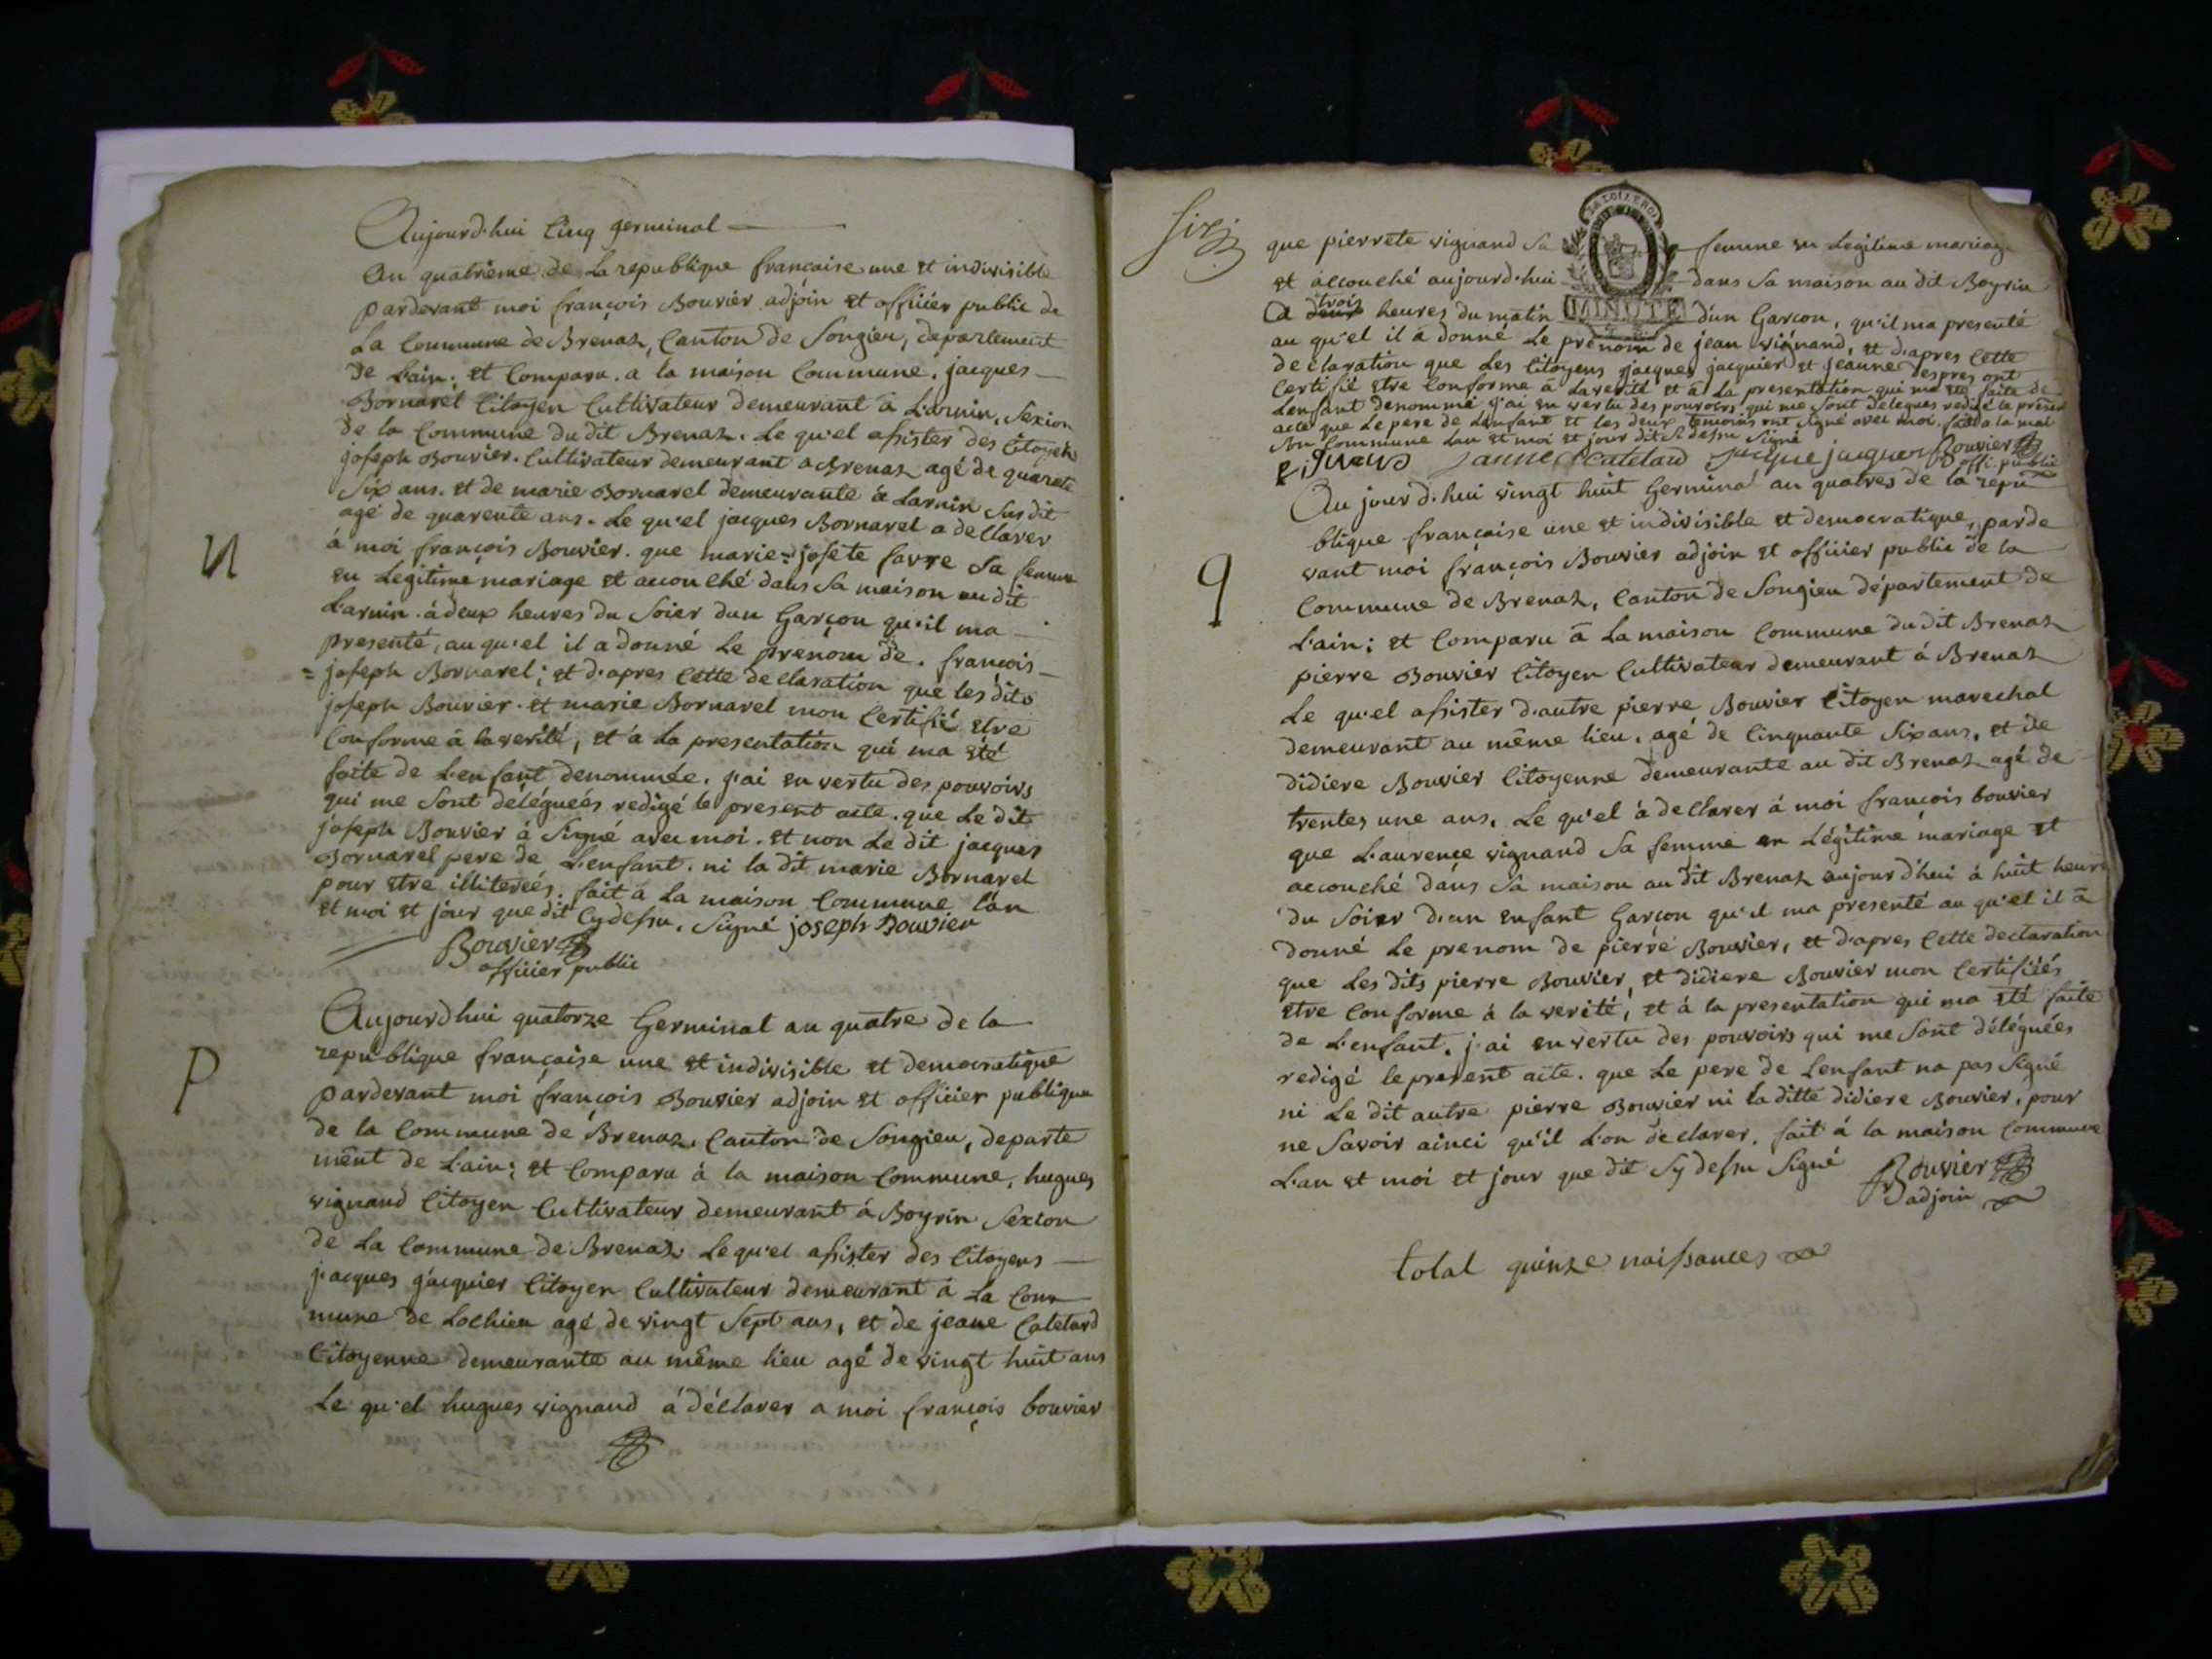 Aujourd'hui cinq germinal
an quatrieme de la republique francaise une et indivisible
pardevant moi françois Bouvier adjoin et officier public de
La Commune de Brenaz, Canton de Songieu, departement
de L'ain; et Comparu. a la maison Commune, jacques
Bornarel Citoyen Cultivateur demeurant à L'arnin, Sexion
de la Commune du dit Brenaz. Le qu'el assister des Citoyen
joseph Bouvier. Cultivateur demeurant a Brenaz agé de quarate
Six ans. et de marie Bornarel demeurante à Larnin Susdit
agé de quarente ans. Le qu'el jacques Bornarel a declarer
N
à moi françois Bouvier. que marie=josete favre Sa femme
en Legitime mariage et accouché dans Sa maison au dit
L'arnin. à deux heures du Soier dun Garçon qu'il ma
presenté, au qu'el il a donné Le prenom de. françois
=joseph Bornarel; et d'apres Cette declaration que les dits
joseph Bouvier. et marie Bornarel mon Certifié etre
Conforme à la verité, et à La presentation qui ma été
faite de L'enfant denommée. j'ai en vertu des pouvoirs
qui me Sont déléguées redigé le present acte. que Le dit
joseph Bouvier à Signé avec moi. et non Le dit jacques
Bornarel pere de L'enfant. ni la dit marie Bornarel
pour etre illitereés. fait à La maison Commune l'an
et moi et jour que dit Cy dessu. Signé joseph Bouvier
Bouvier
officier public
Aujourdhui quatorze Germinal an quatre de la
republique française une et indivisible et democratique
P
pardevant moi françois Bouvier adjoin et officier publique
de la Commune de Brenaz, Canton de Songieu, departe
ment de L'ain; et Comparu à la maison Commune, hugues
vignand Citoyen Cultivateur demeurant à Boyrin Sexion
de La Commune de Brenaz. Le qu'el assister des Citoyens
jacques jacquier Citoyen Cultivateur demeurant à La Com
mune de Lochieu agé de vingt Sept ans, et de jeane Catelard
Citoyenne demeurante au même lieu agé de vingt huit ans
Le qu'el hugues vignand à déclarer a moi françois bouvier
que pierrete vignand Sa femme en Legitime mariage
LA LOI LE ROI
et accouché aujourd'hui dans Sa maison au dit Boyrin
trois
a deux heures du matin MINUTE d'un Garcon, qu'il ma presenté
au qu'el il a donné Le prenom de jean vignand, et d'apres Cette
declaration que Les Citoyens jacques jacquier et jeanne ont
Certifié etre Conforme à La verité et à La presentation qui ma eté faite de
Lenfant denommé j'ai en vertu des pouvoirs qui me Sont delegues redigé le presen
acte que Le pere de Lenfant et les deux temoins ont signé avec moi. fait a la mai
Son Commune Lan et moi et jour dit Si dessu Signé
Janne Catelard Jacque jacquier Bouvier
offi. public
Au jour d'hui vingt huit Germinal an quatres de la repu
blique française une et indivisible et democratique, parde
vant moi françois Bouvier adjoin et officier public de la
9
Commune de Brenaz, Canton de Songieu département de
L'ain; et Comparu à La maison Commune du dit Brenaz
pierre Bouvier Citoyen Cultivateur demeurant à Brenaz
Le qu'el assister d'autre pierre Bouvier Citoyen marechal
demeurant au même lieu, agé de Cinquante Six ans, et de
didiere Bouvier Citoyenne demeurante au dit Brenaz agé de
trentes une ans, Le qu'el à declarer à moi françois bouvier
que L'aurence vignand Sa femme en Légitime mariage et
accouché dans Sa maison au dit Brenaz aujourd'hui à huit heure
du Soier d'un enfant Garçon qu'il ma presenté au qu'el il à
donné Le prenom de pierre Bouvier, et d'apres Cette declaration
que Les dits pierre Bouvier, et didiere Bouvier mon Certifiés
etre Conforme à la verité, et à la presentation qui ma été faite
de L'enfant. j'ai en vertu des pouvoirs qui me Sont déléguées
redigé le present acte. que Le pere de Lenfant na pas Signé
ni Le dit autre pierre Bouvier ni la ditte didiere Bouvier, pour
ne Savoir ainci qu'il L'on declarer. fait à la maison Commune
L'an et moi et jour que dit Sy dessu Signé Bouvier
adjoin
total quinze naissances